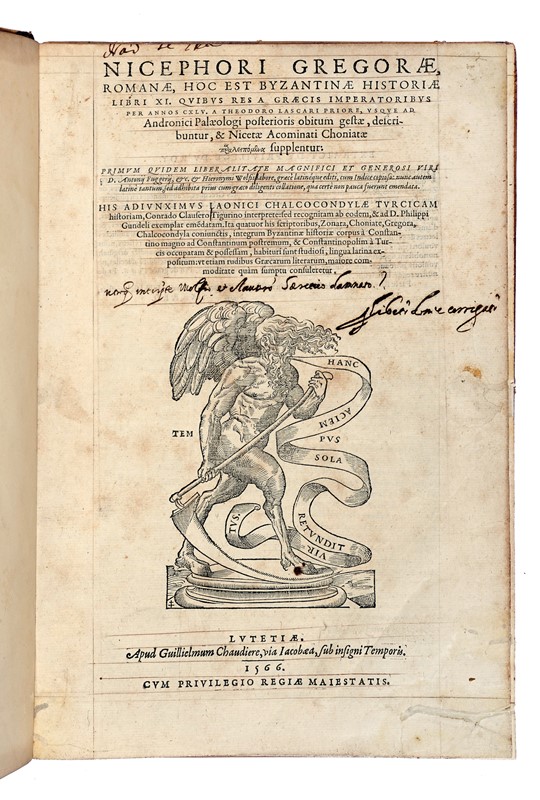 NICEPHORI GREGORÆ,
ROMANÆ, HOC EST BYZANTINÆ HISTORIÆ
LIBRI XI. QVIBVS RES A GRÆCIS IMPERATORIBVS
PER ANNOS CXLV. A THEODORO LASCARI PRIORE, VSQVE AD
Andronici Palæologi posterioris obitum gestæ, descri-
buntur, & Nicetæ Acominati Choniatæ
supplentur:
PRIMVM QVIDEM LIBERALITATE MAGNIFICI ET GENEROSI VIRI
D. Antonij Fuggerij, &c. & Hieronymi Wolfij labore, græcè latinéque editi, cum Indice copioso: nunc autem
latinè tantum, sed adhibita prius cum græco diligenti collatione, qua certè non pauca fuerunt emendata.
HIS ADIVNXIMVS LAONICI CHALCOCONDYLÆ TVRCICAM
historiam, Conrado Clausero Tigurino interprete: sed recognitam ab eodem, & ad D. Philippi
Gundelij exemplar emēdatam. Ita quatuor his scriptoribus, Zonara, Choniate, Gregora,
Chalcocondyla coniunctis, integrum Byzantinæ historiæ corpus à Constan-
tino magno ad Constantinum postremum, & Constantinopolim à Tur-
cis occupatam & possessam, habituri sunt studiosi, lingua latina ex-
positum: vt etiam rudibus Græcarum literarum, maiore com-
moditate quàm sumptu consuleretur.
HANC
ACIEM
TEM
PVS
SOLA
RETVNDIT
VIR
TVS.
LVTETIÆ.
Apud Guillielmum Chaudiere, via Iacobæa, sub insigni Temporis.
1566.
CVM PRIVILEGIO REGIÆ MAIESTATIS.